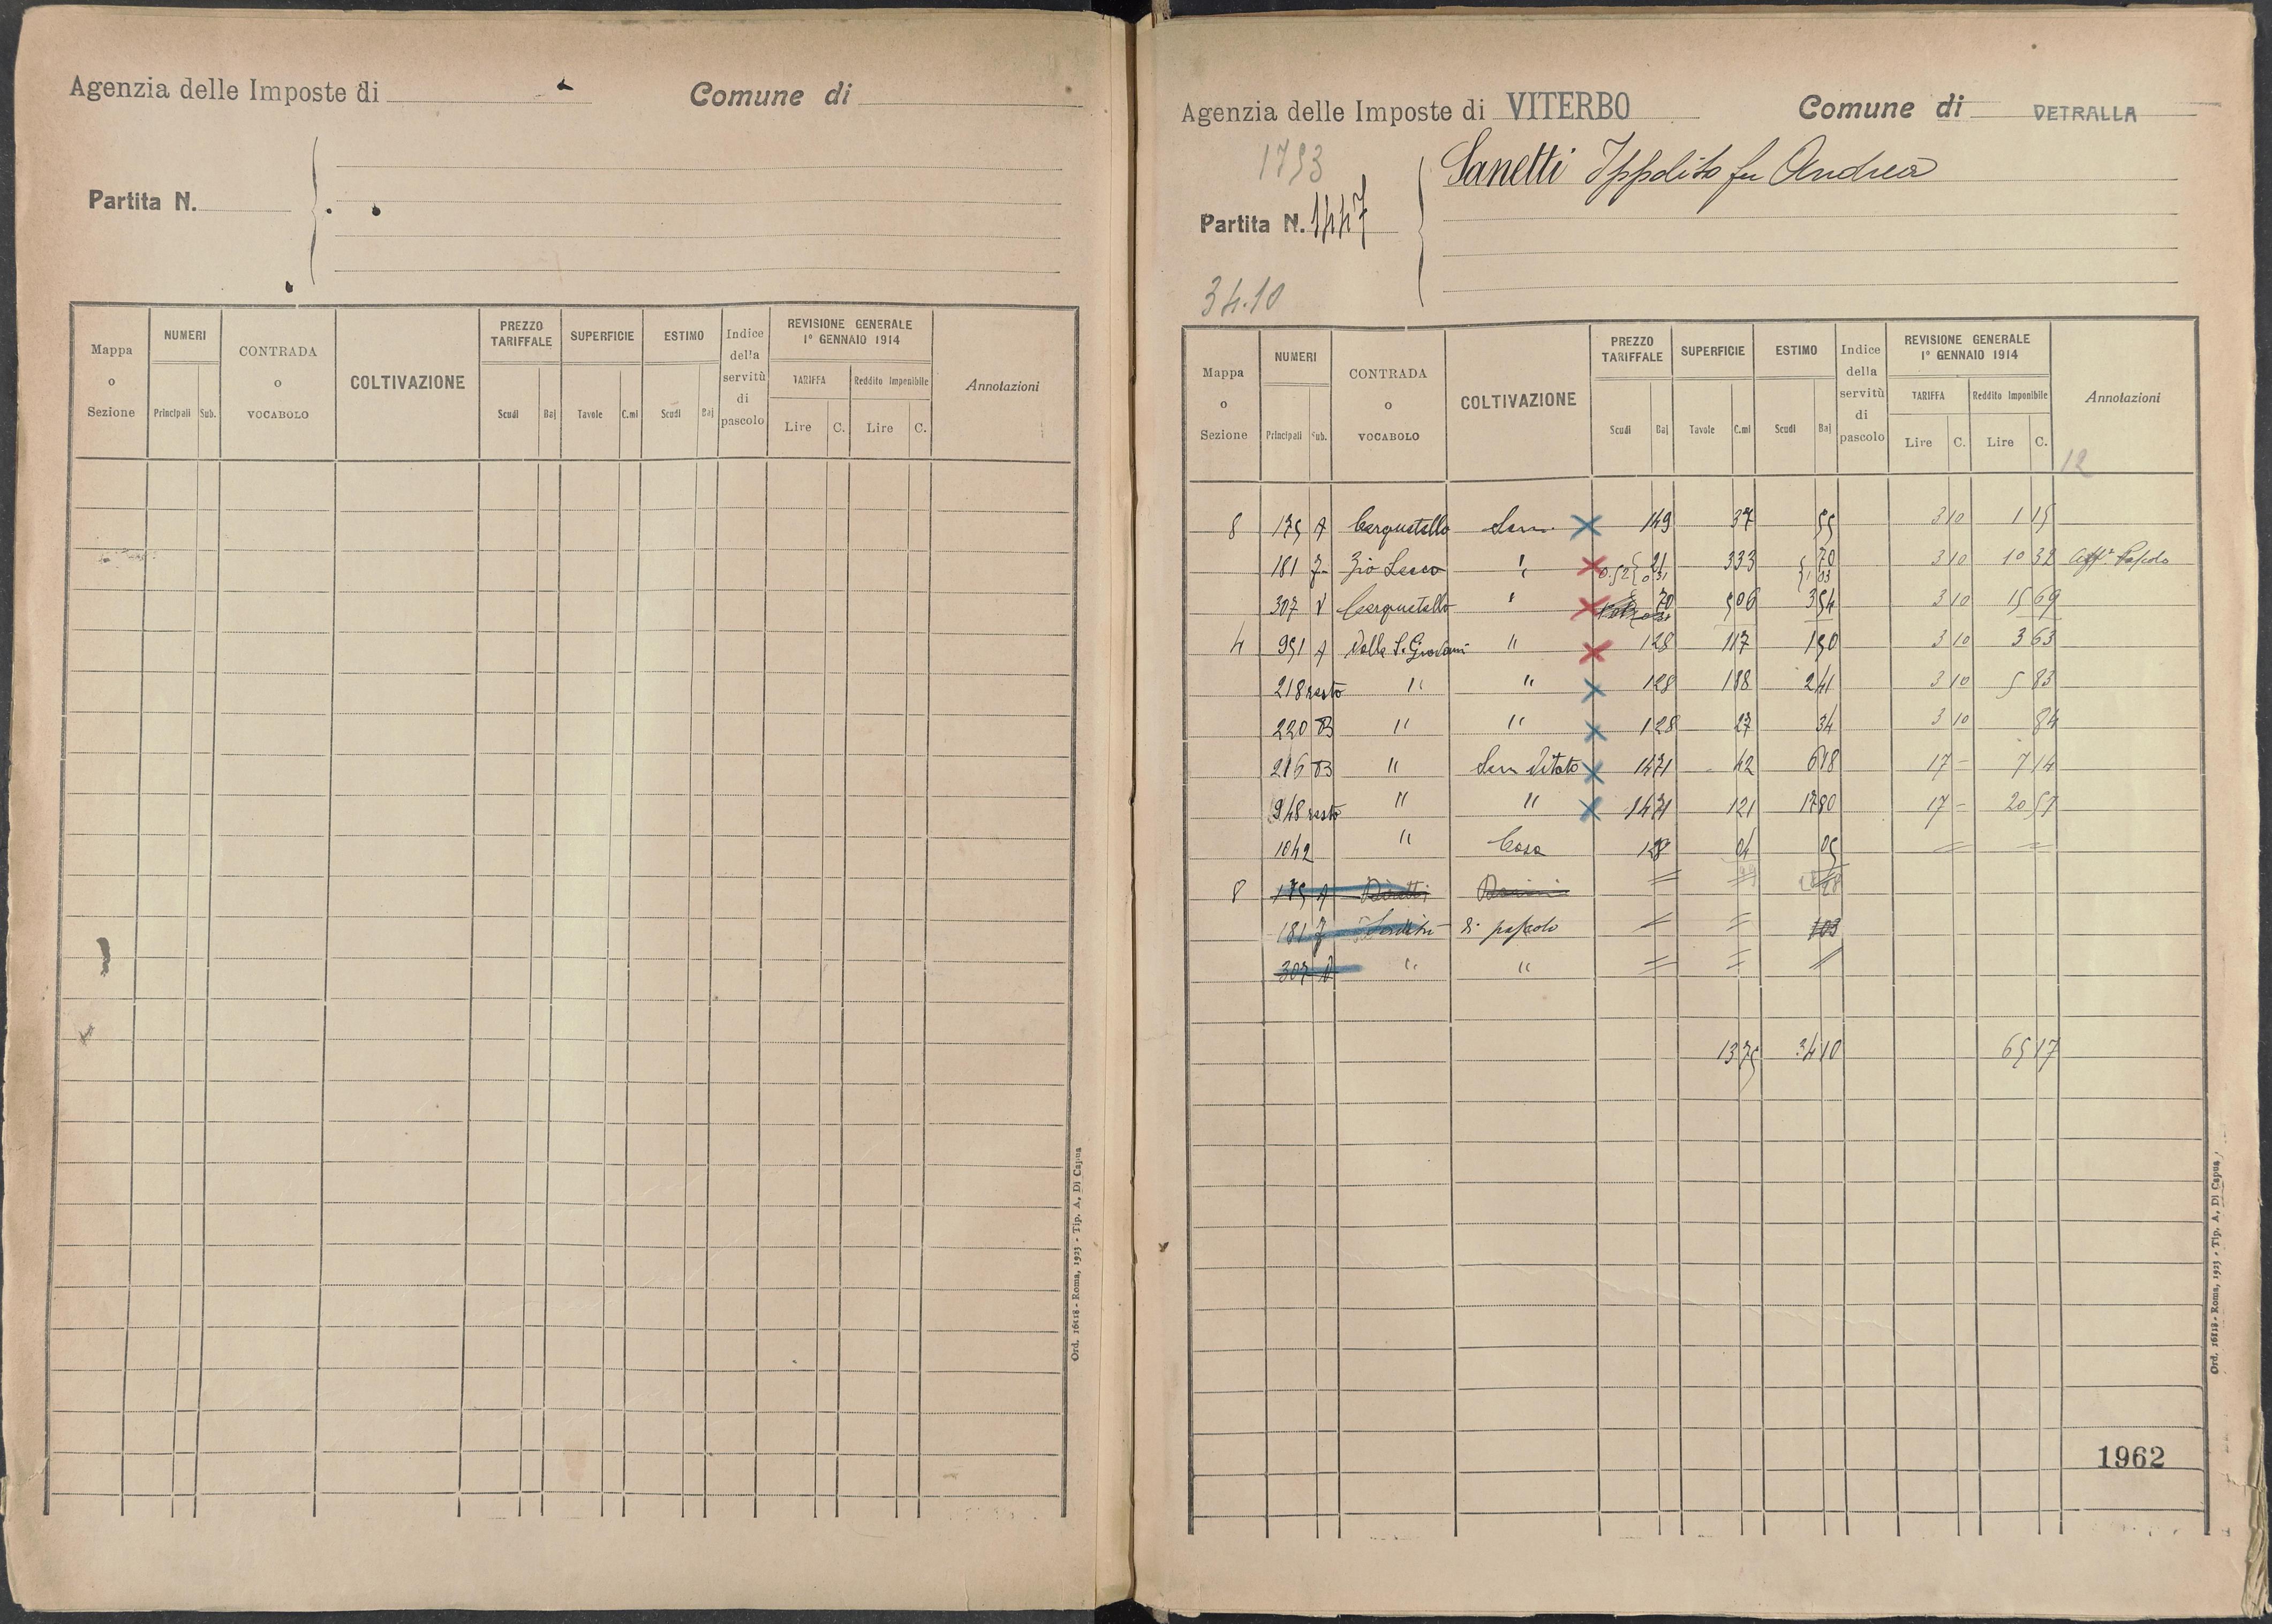 Agenzia delle Imposte di Comune di
Partita N.
Mappa o Sezione NUMERI Principali Sub. CONTRADA o VOCABOLO COLTIVAZIONE PREZZO TARIFFALE Scudi Baj SUPERFICIE Tavole C.mi ESTIMO Scudi Baj Indice della servitù di pascolo REVISIONE GENERALE 1° GENNAIO 1914 TARIFFA Lire C. Reddito Imponibile Lire C. Annotazioni
Ord. 16118 - Roma, 1923 - Tip. A. Di Capua
Agenzia delle Imposte di VITERBO Comune di VETRALLA
1753
Partita N. 1447
Sanetti Ippolito fu Andrea
34.10
Mappa o Sezione NUMERI Principali Sub. CONTRADA o VOCABOLO COLTIVAZIONE PREZZO TARIFFALE Scudi Baj SUPERFICIE Tavole C.mi ESTIMO Scudi Baj Indice della servitù di pascolo REVISIONE GENERALE 1° GENNAIO 1914 TARIFFA Lire C. Reddito Imponibile Lire C. Annotazioni
12
8 175 A Cerquetello Sem. 149 37 55 3 10 1 15
181 Zio " 21 333 70 3 10 10 32 Pascolo
0.52 0 31 1 03
307 V Cerquetello " 70 506 3 54 3 10 15 69
4 951 A Valle S. Giovanni " 1 28 1 17 1 50 3 10 3 63
218 resto " " 1 28 1 88 2 41 3 10 5 83
220 B " " 1 28 27 34 3 10 84
216 B " Sem Vitato 14 71 42 6 18 17 - 7 14
948 resto " " 14 71 1 21 17 80 17 - 20 57
1042 " Casa 1 28 04 05 = =
8 175 A = =
181 di pascolo = = 103
307 V " " = = =
13 75 34 10 65 17
1962
Ord. 16118 - Roma, 1923 - Tip. A. Di Capua